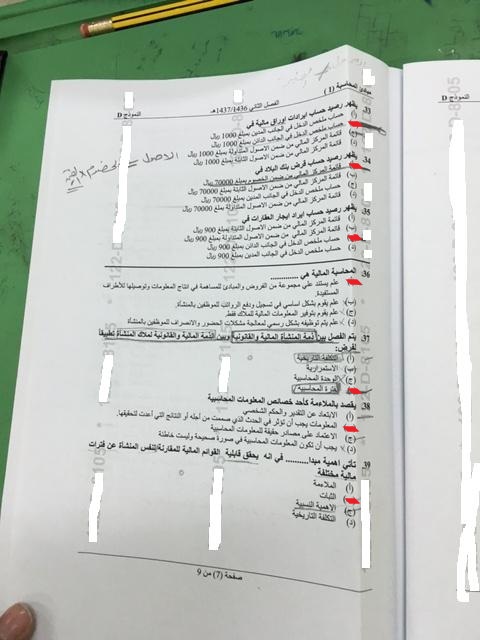 مبادئ المحاسبة ( 1 )
الفصل الثاني 1437/1436هـ
النموذج D
33. يظهر رصيد حساب ايرادات اوراق مالية في
(أ) حساب ملخص الدخل في الجانب المدين بمبلغ 1000 ريال
(ب) حساب ملخص الدخل في الجانب الدائن بمبلغ 1000 ريال
(ج) قائمة المركز المالي من ضمن الاصول المتداولة بمبلغ 1000 ريال
(د) قائمة المركز المالي من ضمن الاصول الثابتة بمبلغ 1000 ريال
34. يظهر رصيد حساب قرض بنك البلاد في
(أ) قائمة المركز المالي من ضمن الخصوم بمبلغ 70000 ريال
(ب) قائمة المركز المالي من ضمن الاصول الثابتة بمبلغ 70000 ريال
(ج) حساب ملخص الدخل في الجانب المدين بمبلغ 70000 ريال
(د) قائمة المركز المالي من ضمن الاصول المتداولة بمبلغ 70000 ريال
35. يظهر رصيد حساب ايراد ايجار العقارات في
(أ) قائمة المركز المالي من ضمن الاصول الثابتة بمبلغ 900 ريال
(ب) قائمة المركز المالي من ضمن الاصول المتداولة بمبلغ 900 ريال
(ج) حساب ملخص الدخل في الجانب الدائن بمبلغ 900 ريال
(د) حساب ملخص الدخل في الجانب المدين بمبلغ 900 ريال
36. المحاسبة المالية هي ............
(أ) علم يستند علي مجموعة من الفروض والمبادئ للمساهمة في انتاج المعلومات وتوصيلها للأطراف
المستفيدة.
(ب) علم يقوم بشكل اساسي في تسجيل ودفع الرواتب للموظفين بالمنشأة.
(ج) علم يقوم بتوفير المعلومات المالية للملاك فقط.
(د) علم يتم توظيفه بشكل رسمي لمعالجة مشكلات الحضور والانصراف للموظفين بالمنشأة
37. يتم الفصل بين ذمة المنشأة المالية والقانونية وبين الذمة المالية والقانونية لملاك المنشأة تطبيقا
لفرض:
(أ) التكلفة التاريخية
(ب) الاستمرارية
(ج) الوحدة المحاسبية
(د) الفترة المحاسبية
38. يقصد بالملاءمة كأحد خصائص المعلومات المحاسبية
(أ) الابتعاد عن التقدير والحكم الشخصي
(ب) المعلومات يجب أن تؤثر في الحدث الذي صممت من أجله أو النتائج التي أعدت لتحقيقها.
(ج) الاعتماد على مصادر حقيقة للمعلومات المحاسبية
(د) يجب أن تكون المعلومات المحاسبية في صورة صحيحة وليست خاطئة
39. تأتي أهمية مبدأ.......... في انه يحقق قابلية القوائم المالية للمقارنة لنفس المنشأة عن فترات
مالية مختلفة
(أ) الملاءمة
(ب) الثبات
(ج) الاهمية النسبية
(د) التكلفة التاريخية
صفحة (7) من 9